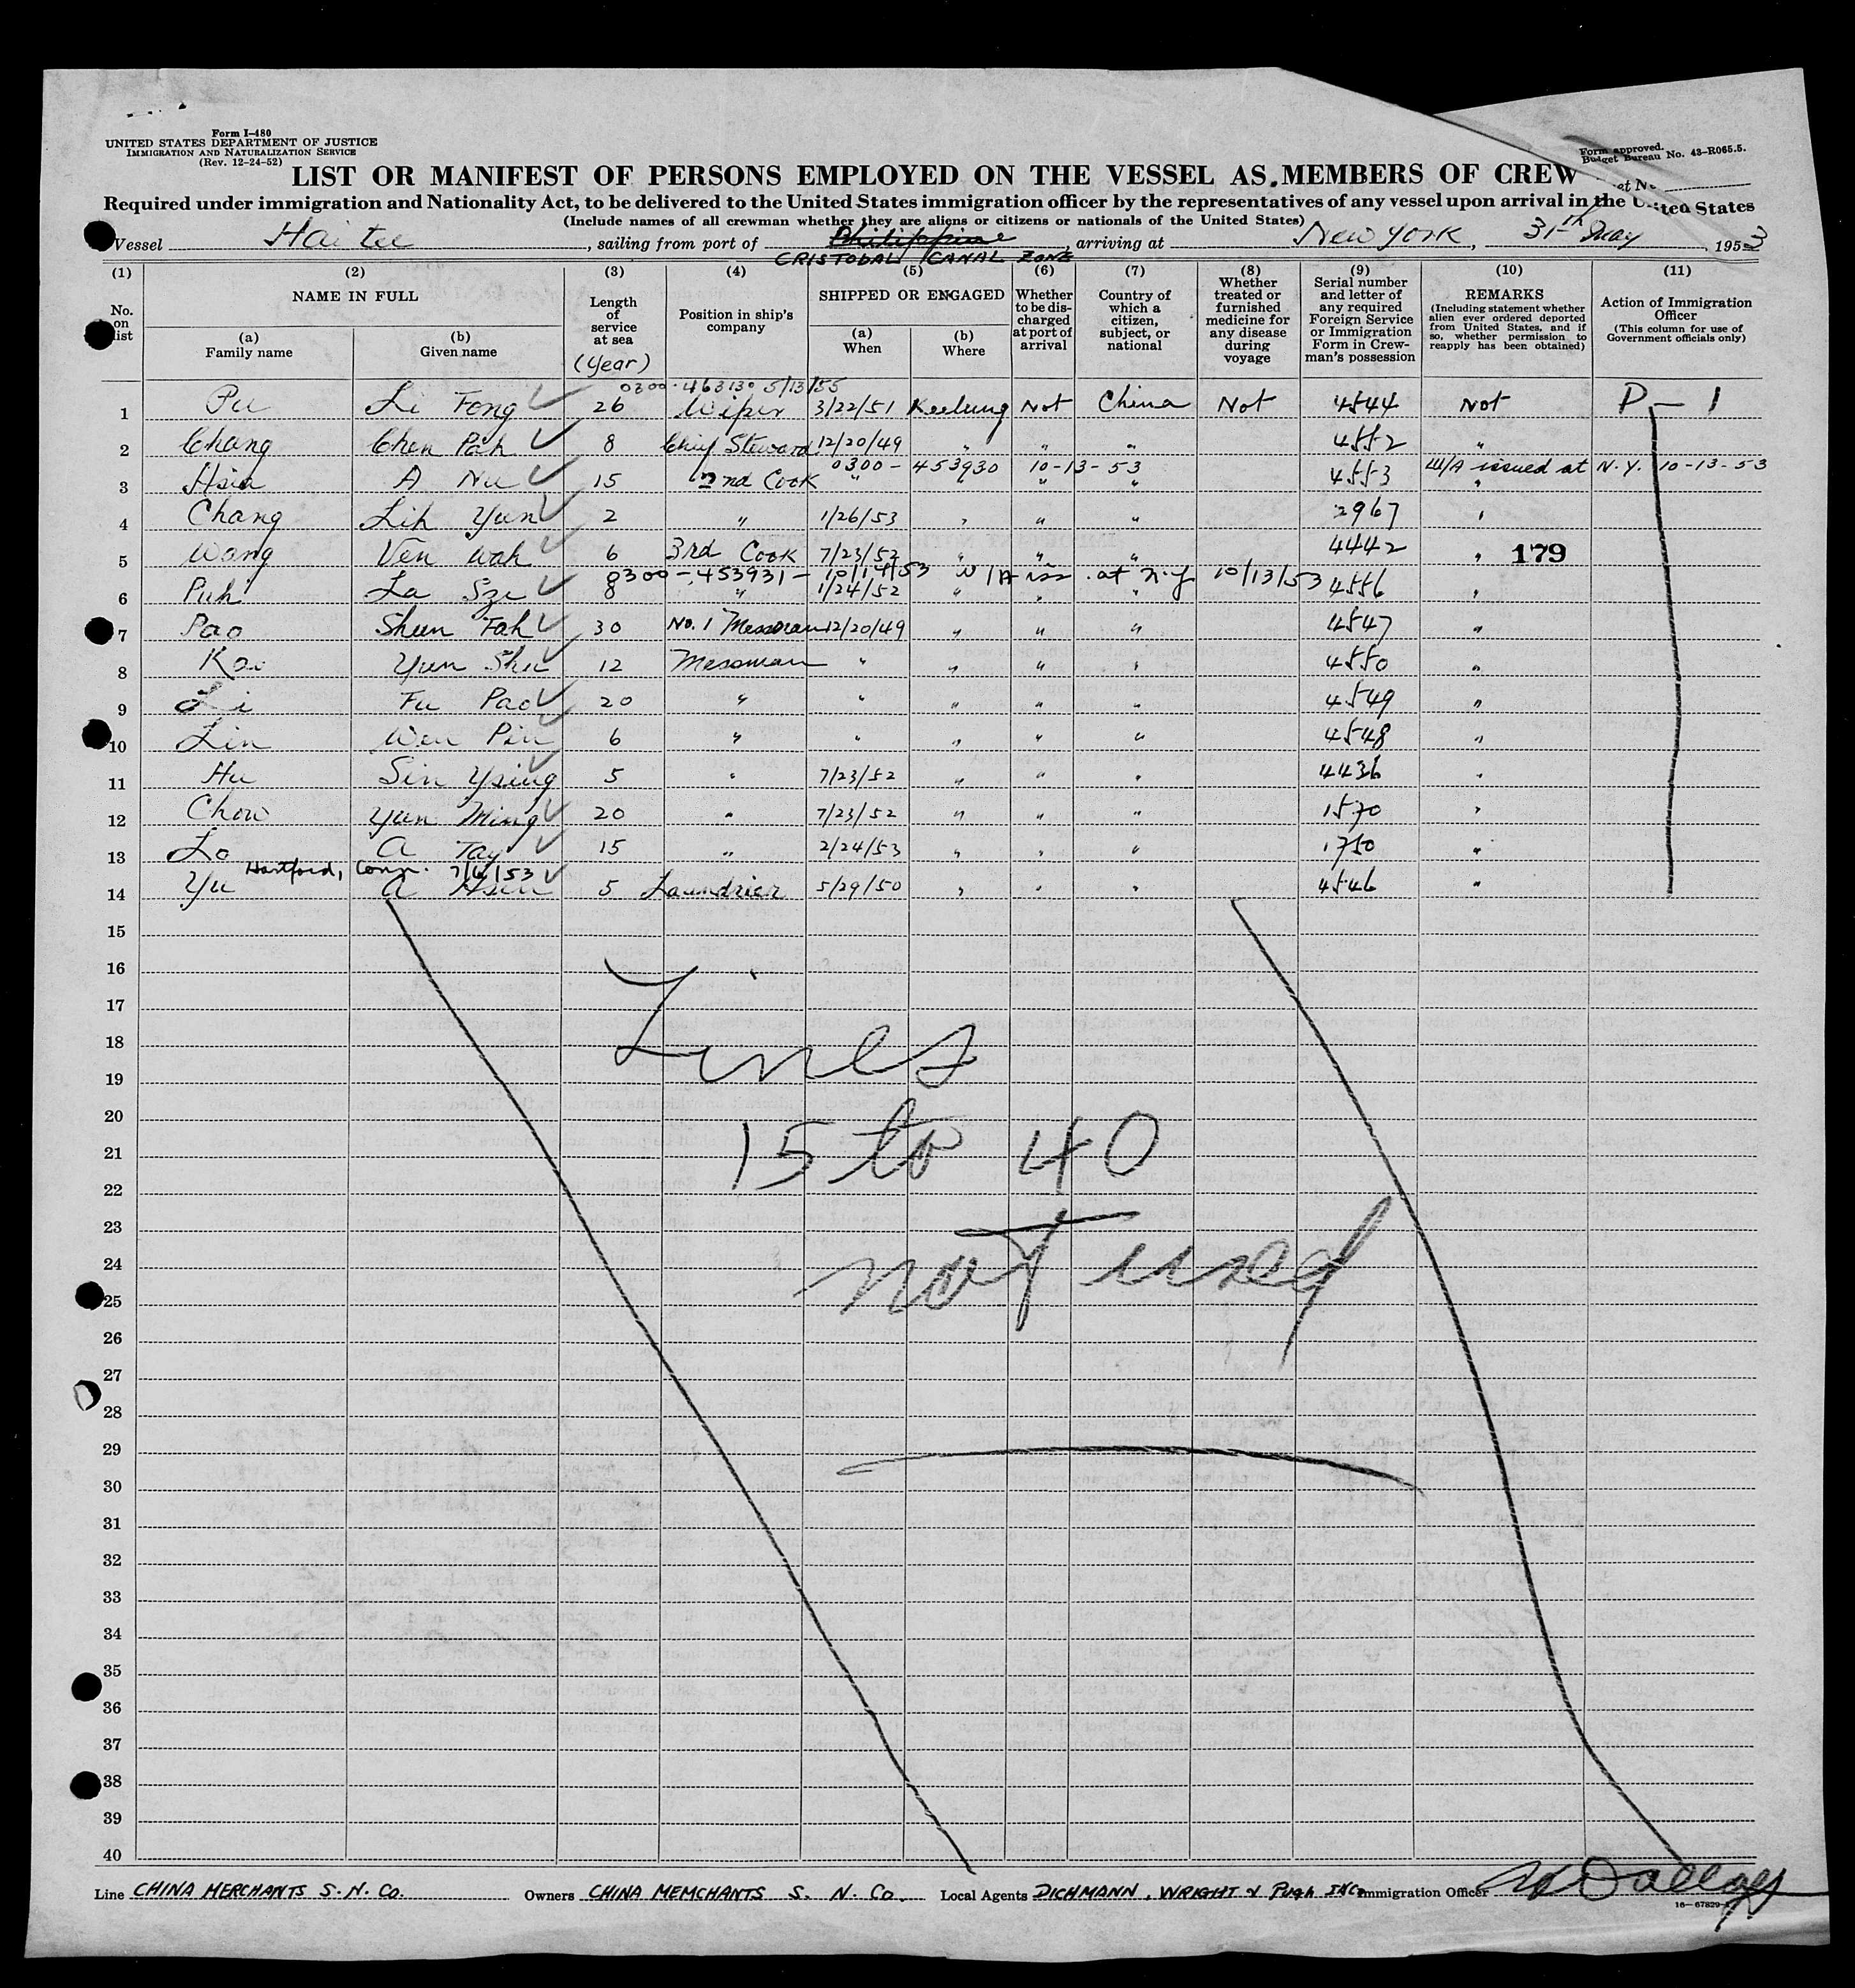 Form I-480
UNITED STATES DEPARTMENT OF JUSTICE
IMMIGRATION AND NATURALIZATION SERVICE
(Rev. 12-24-52)
Form approved.
Budget Bureau No. 43-R065.5.
LIST OR MANIFEST OF PERSONS EMPLOYED ON THE VESSEL AS MEMBERS OF CREW
Required under immigration and Nationality Act, to be delivered to the United States immigration officer by the representatives of any vessel upon arrival in the United States
(Include names of all crewman whether they are aliens or citizens or nationals of the United States)
Vessel Hai tee, sailing from port of Philippine, arriving at New York, 31th May, 1953
CRISTOBAL CANAL ZONE
(1) (2) (3) (4) (5) (6) (7) (8) (9) (10) (11)
No. on list
NAME IN FULL
(a) Family name
(b) Given name
Length of service at sea
(Year)
Position in ship's company
SHIPPED OR ENGAGED
(a) When
(b) Where
Whether to be discharged at port of arrival
Country of which a citizen, subject, or national
Whether treated or furnished medicine for any disease during voyage
Serial number and letter of any required Foreign Service or Immigration Form in Crewman's possession
REMARKS
(Including statement whether alien ever ordered deported from United States, and if so, whether permission to reapply has been obtained)
Action of Immigration Officer
(This column for use of Government officials only)
0300-463130 5/13/55
1 Pu Li Fong 26 Wiper 3/22/51 Keelung Not China Not 4544 Not P-1
2 Chang Chen Pah 8 Chief Steward 12/20/49 " " " 4552 "
0300-453930 10-13-53 W/A issued at N.Y. 10-13-53
3 Hsia A Nu 15 2nd Cook " " " 4553 "
4 Chang Lih Yun 2 " 1/26/53 " " " 2967 "
5 Wong Ven Wah 6 3rd Cook 7/23/52 " " " 4442 " 179
0300-453931- 10/14/53 W/A iss. at N.Y 10/13/53
6 Puh La Sze 8 " 1/24/52 " " " 4556 "
7 Pao Shun Fah 30 No. 1 Messman 12/20/49 " " " 4547 "
8 Kao Yun Shu 12 Messman " " " " 4550 "
9 Li Fu Pao 20 " " " " " 4549 "
10 Lin Wen Pin 6 " " " " " 4548 "
11 Hu Sin Ysing 5 " 7/23/52 " " " 4436 "
12 Chow Yun Ming 20 " 7/23/52 " " " 1570 "
13 Lo A Tay 15 " 2/24/53 " " " 1750 "
Hartford, Conn. 7/6/53
14 Yu A 5 Laundrier 5/29/50 " " " 4546 "
15
16
17
18
19
20
21
22
23
24
25
26
27
28
29
30
31
32
33
34
35
36
37
38
39
40
Lines
15 to 40
not used
Line CHINA MERCHANTS S. N. Co. Owners CHINA MEMCHANTS S. N. Co. Local Agents DICHMANN, WRIGHT & Pugh INC. Immigration Officer
16-67829-1